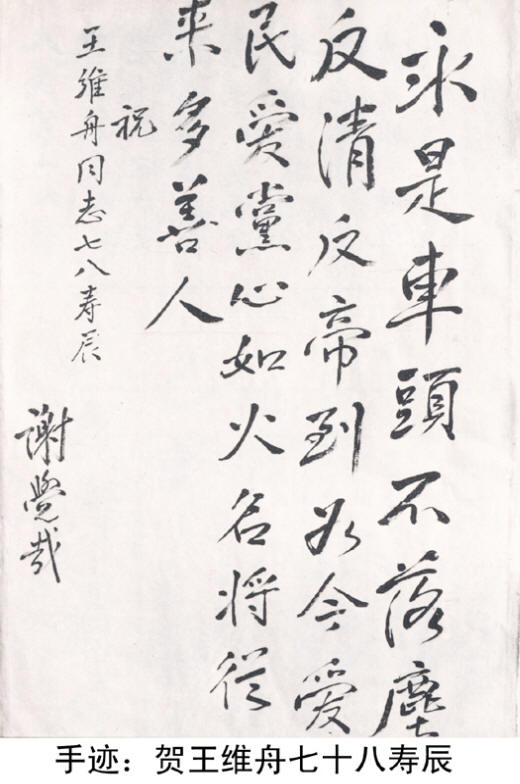 永是車頭不落塵
反清反帝到如今愛
民愛黨心如火名將從
来多善人
祝
王維舟同志七八寿辰
謝覺哉
手迹：贺王维舟七十八寿辰